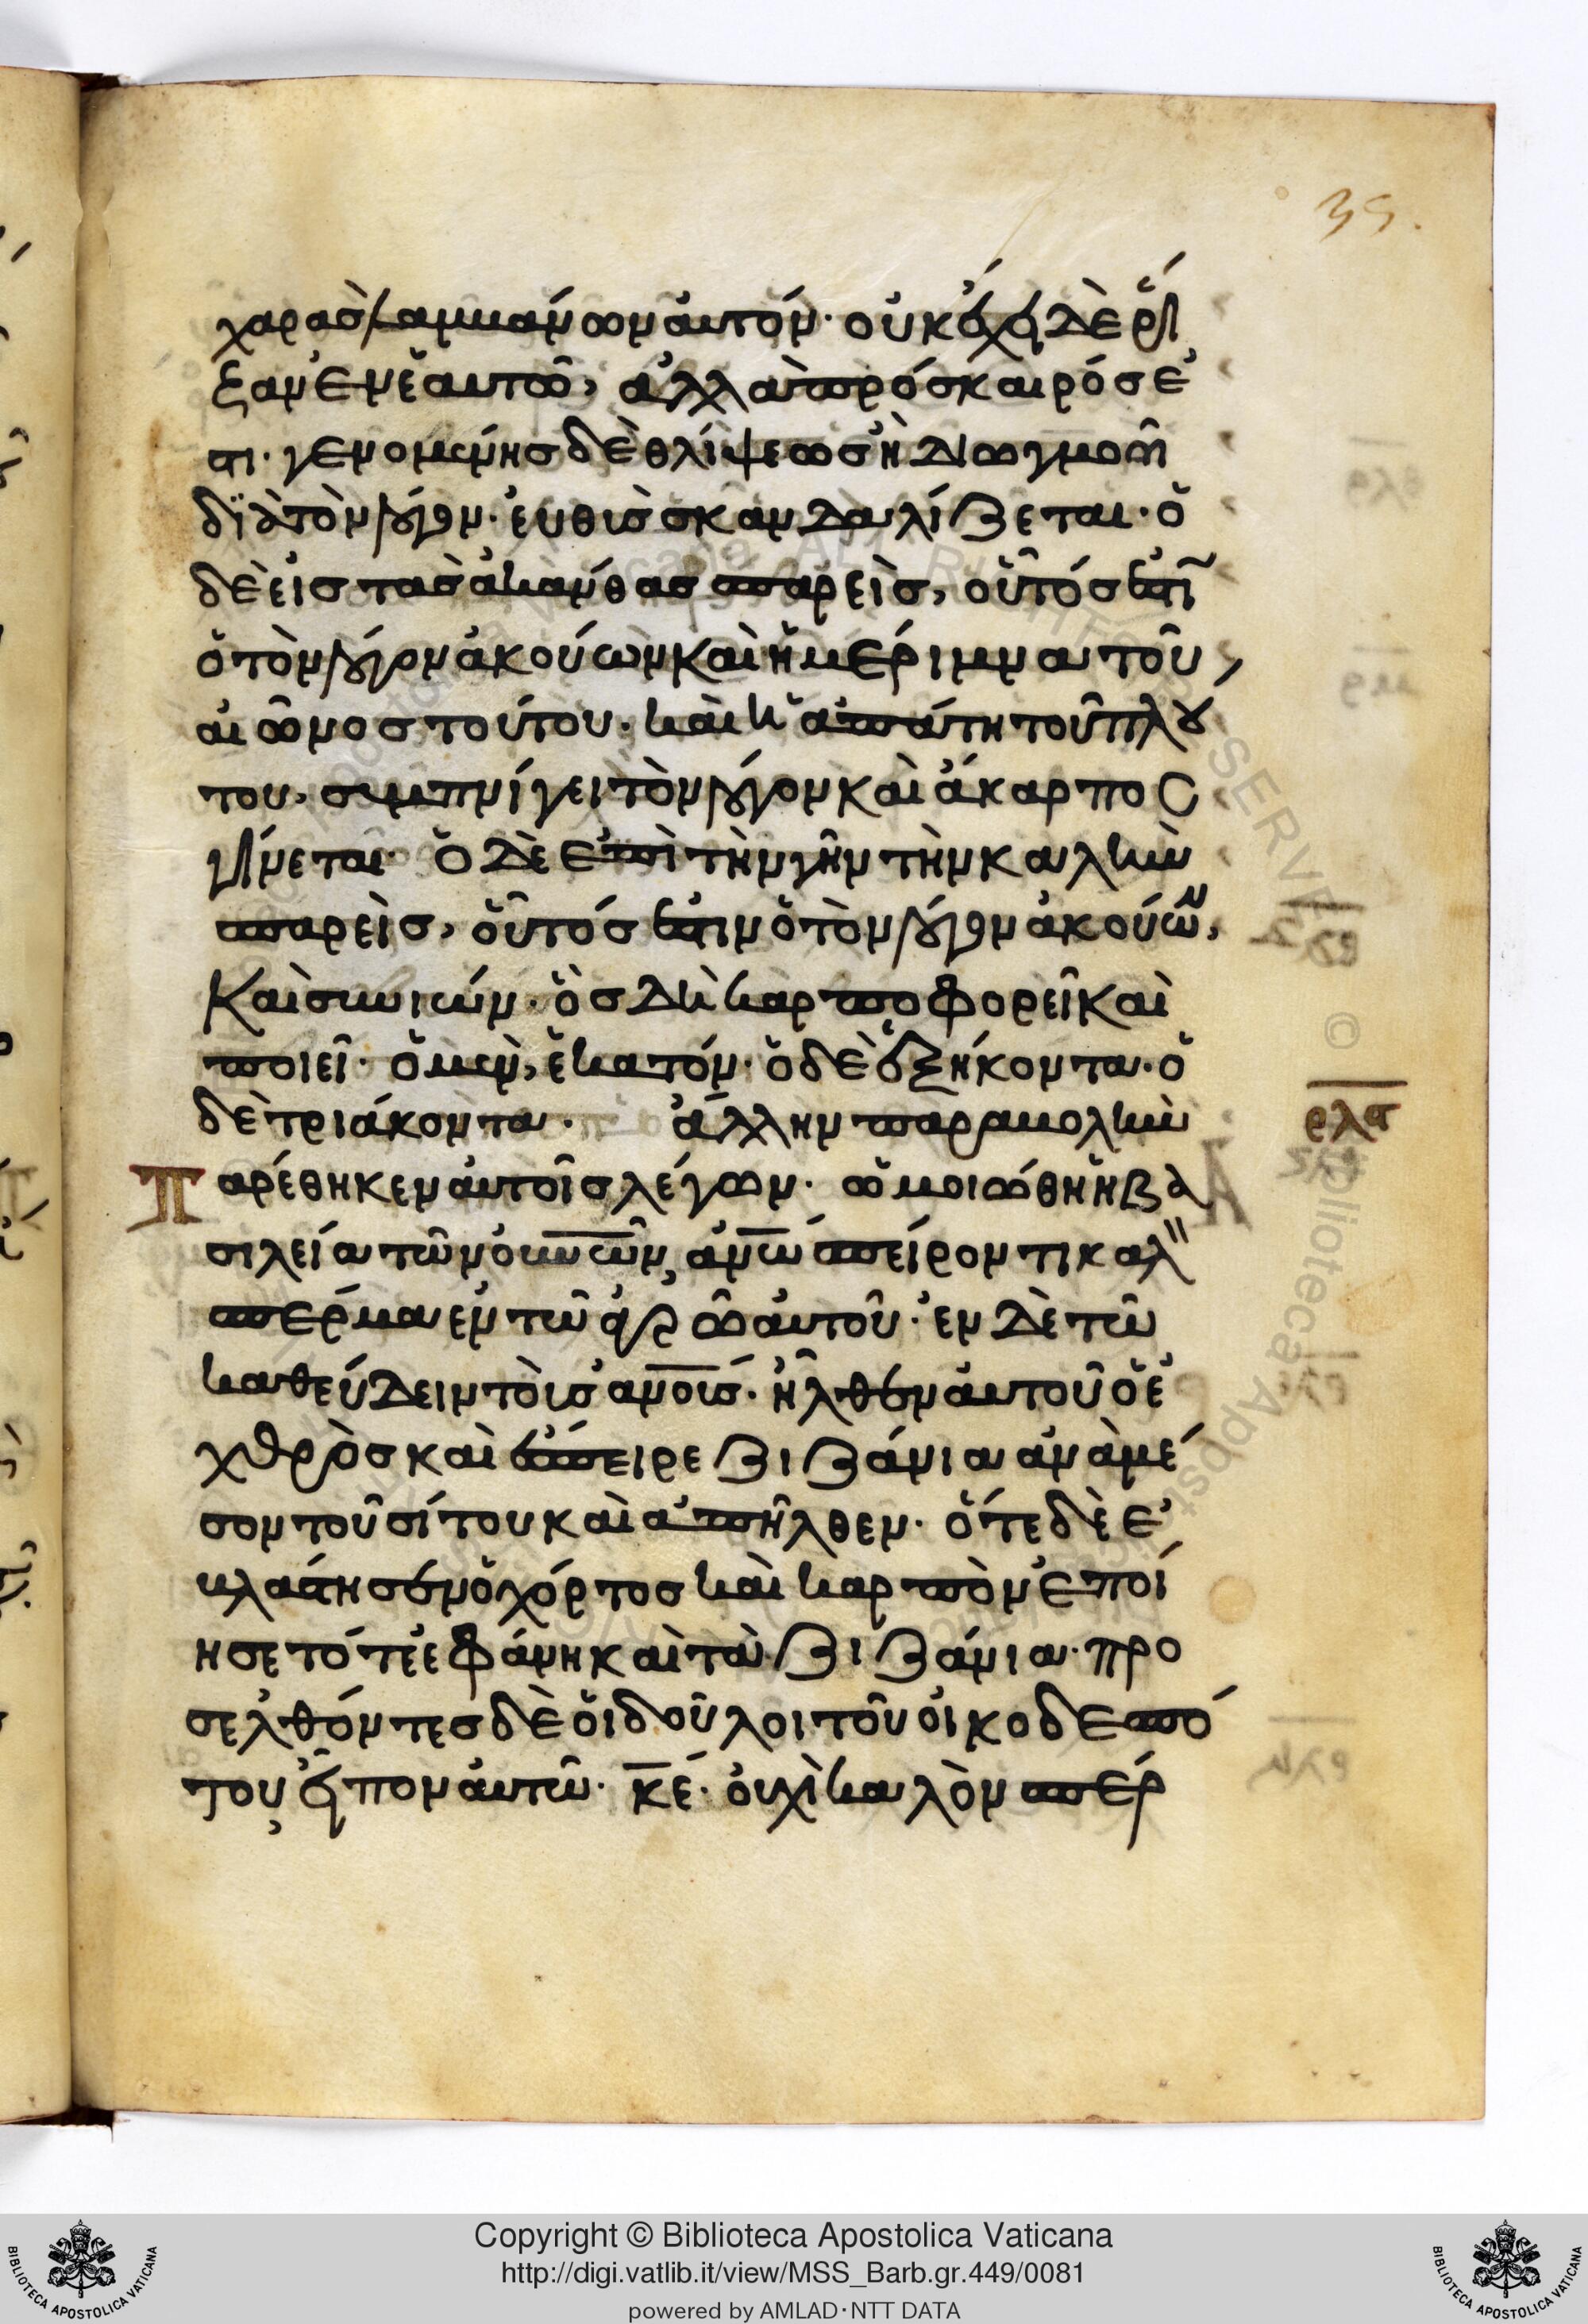 35.
χαρασ λαμβάνων ἀυτόν· οὐκ ἔχει δὲ ρί
ζαν ἐν ἑαυτῶ, ἀλλὰ πρόσκαιρόσ ἐ
στι· γενομένησ δὲ θλίψεωσ ἢ διωγμοῦ
διὰ τὸν λόγον· ἐυθὺσ σκανδαλίζεται· ὁ
δὲ εἰσ τασ ἀκάνθασ σπαρεὶσ, οὗτόσ ἐστῖ
ὁ τὸν λόγον ἀκούων καὶ ἡ μέριμνα τοῦ
αἰῶνοσ τούτου· καὶ ἡ ἀπάτη τοῦ πλού
του, συμπνίγει τὸν λόγον καὶ ἄκαρποσ
γίνεται· ὁ δὲ ἐπὶ τὴν γῆν τὴν καλὴν
σπαρεὶσ, οὗτόσ ἐστιν ὁ τὸν λόγον ἀκούων,
καὶ συνιών· ὃσ δὴ καρποφορεῖ καὶ
ποιεῖ· ὁ μὲν, ἑκατόν· ὁ δὲ ἑξήκοντα· ὁ
δὲ τριάκοντα· ἄλλην παραβολὴν
ρλϛ
Παρέθηκεν ἀυτοῖσ λέγων· ὡμοιώθη ἡ βα
σιλεία τῶν οὐνῶν, ἀνῶ σπείροντι καλὸ
σπέρμα ἐν τῶ ἀγρῶ ἀυτοῦ· ἐν δὲ τῶ
καθεύδειν τοῖσ ἀνοισ· ἦλθεν ἀυτοῦ ὁ ἐ
χθρὸσ καὶ ἔσπειρε ζιζάνια ἀνὰ μέ
σον τοῦ σίτου καὶ ἀπῆλθεν· ὅτε δὲ ἐ
βλάστησεν ὁ χόρτοσ καὶ καρπὸν ἐποί
ησε τότε ἐφάνη καὶ τὰ ζιζάνια· προ
σελθόντεσ δὲ ὁι δοῦλοι τοῦ ὀικοδεσπό
του εἶπον ἀυτῶ· κέ· ὀυχὶ καλὸν σπέρ
Copyright © Biblioteca Apostolica Vaticana
http://digi.vatlib.it/view/MSS_Barb.gr.449/0081
powered by AMLAD·NTT DATA
BIBLIOTECA APOSTOLICA VATICANA
BIBLIOTECA APOSTOLICA VATICANA